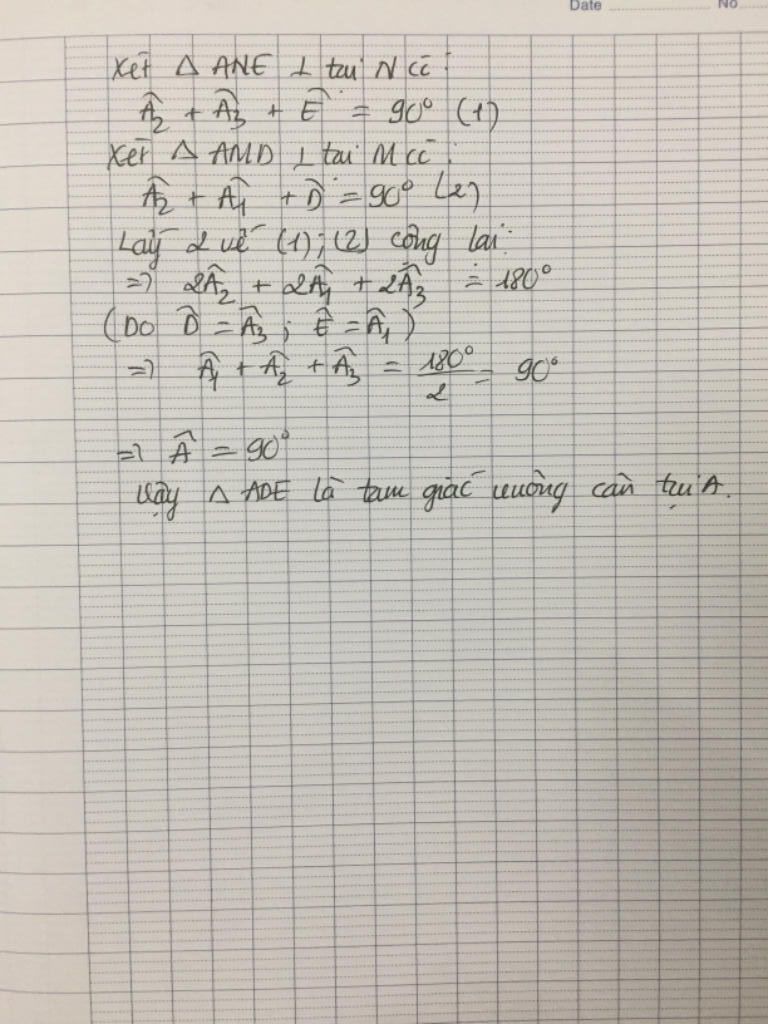 Date No
Xét △ ANE ⊥ tại N có:
Â₂ + Â₃ + Ê = 90° (1)
Xét △ AMD ⊥ tại M có:
Â₂ + Â₁ + D̂ = 90° (2)
Lấy 2 vế (1); (2) cộng lại:
=> 2Â₂ + 2Â₁ + 2Â₃ = 180°
(Do D̂ = Â₃; Ê = Â₁)
=> Â₁ + Â₂ + Â₃ = 180°/2 = 90°
=> Â = 90°
Vậy △ ADE là tam giác vuông cân tại A.